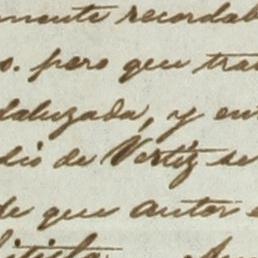 mente recordab
o. pero que tra
dalizada, y en
dio de Vertiz se
de que autor